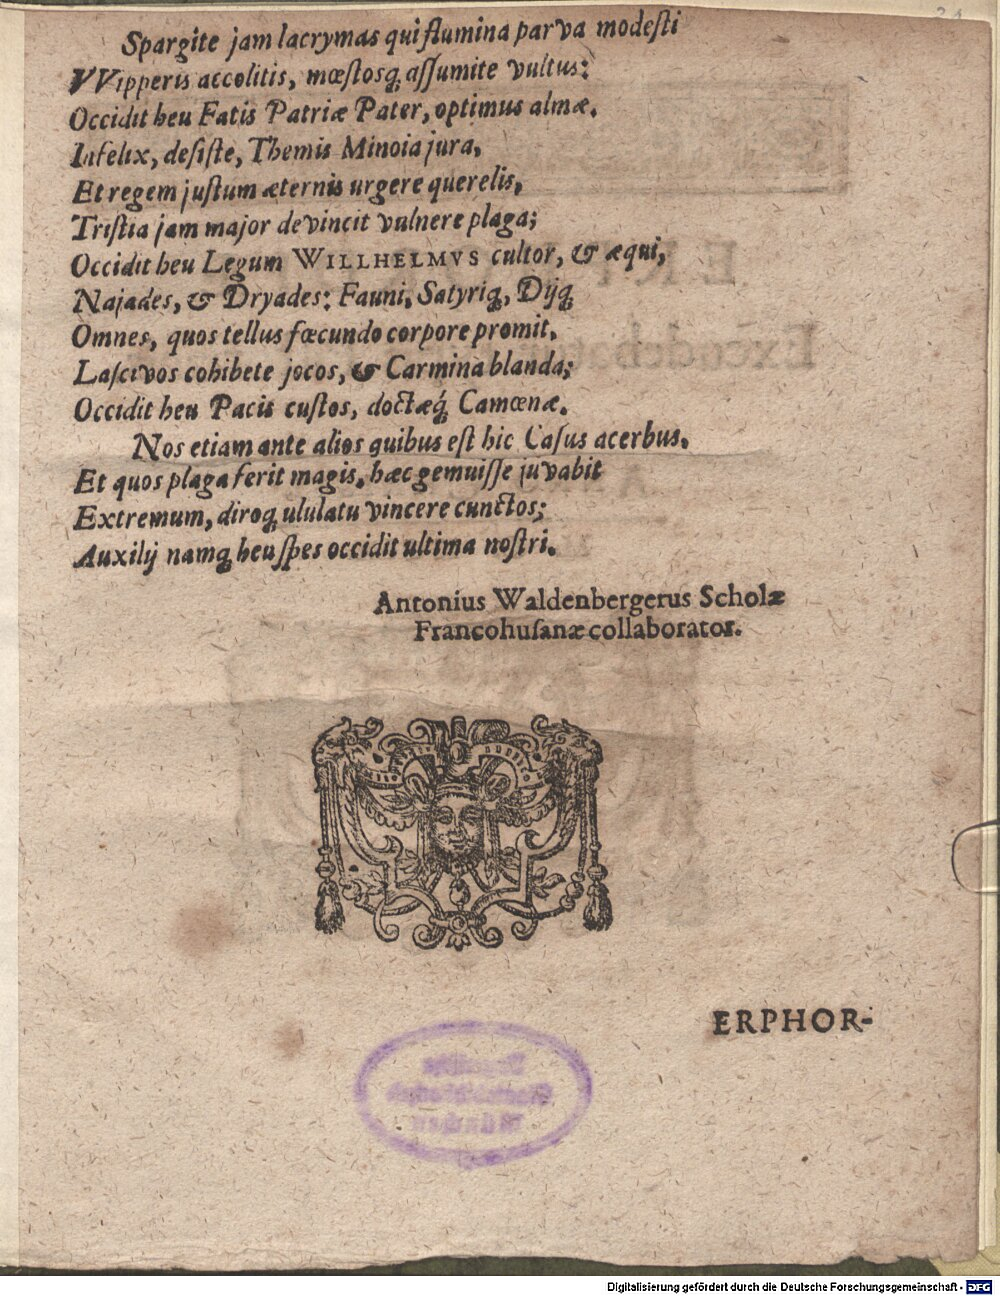 Spargite jam lacrymas qui flumina parva modesti
VVipperis accolitis, mœstosq́; assumite vultus:
Occidit heu Fatis Patriæ Pater, optimus almæ.
Infelix, desiste, Themis Minoia jura,
Et regem justum æternis urgere querelis,
Tristia jam major devincit vulnere plaga;
Occidit heu Legum WILLHELMVS cultor, & æqui,
Najades, & Dryades: Fauni, Satyriq;, Dijq;
Omnes, quos tellus fœcundo corpore promit,
Lascivos cohibete jocos, & Carmina blanda;
Occidit heu Pacis custos, doctæq́; Camœnæ.
Nos etiam ante alios quibus est hic Casus acerbus,
Et quos plaga ferit magis, hæc gemuisse juvabit
Extremum, diroq; ululatu vincere cunctos;
Auxilij namq; heu spes occidit ultima nostri.
Antonius Waldenbergerus Scholæ
Francohusanæ collaborator.
ERPHOR-
Digitalisierung gefördert durch die Deutsche Forschungsgemeinschaft - DFG